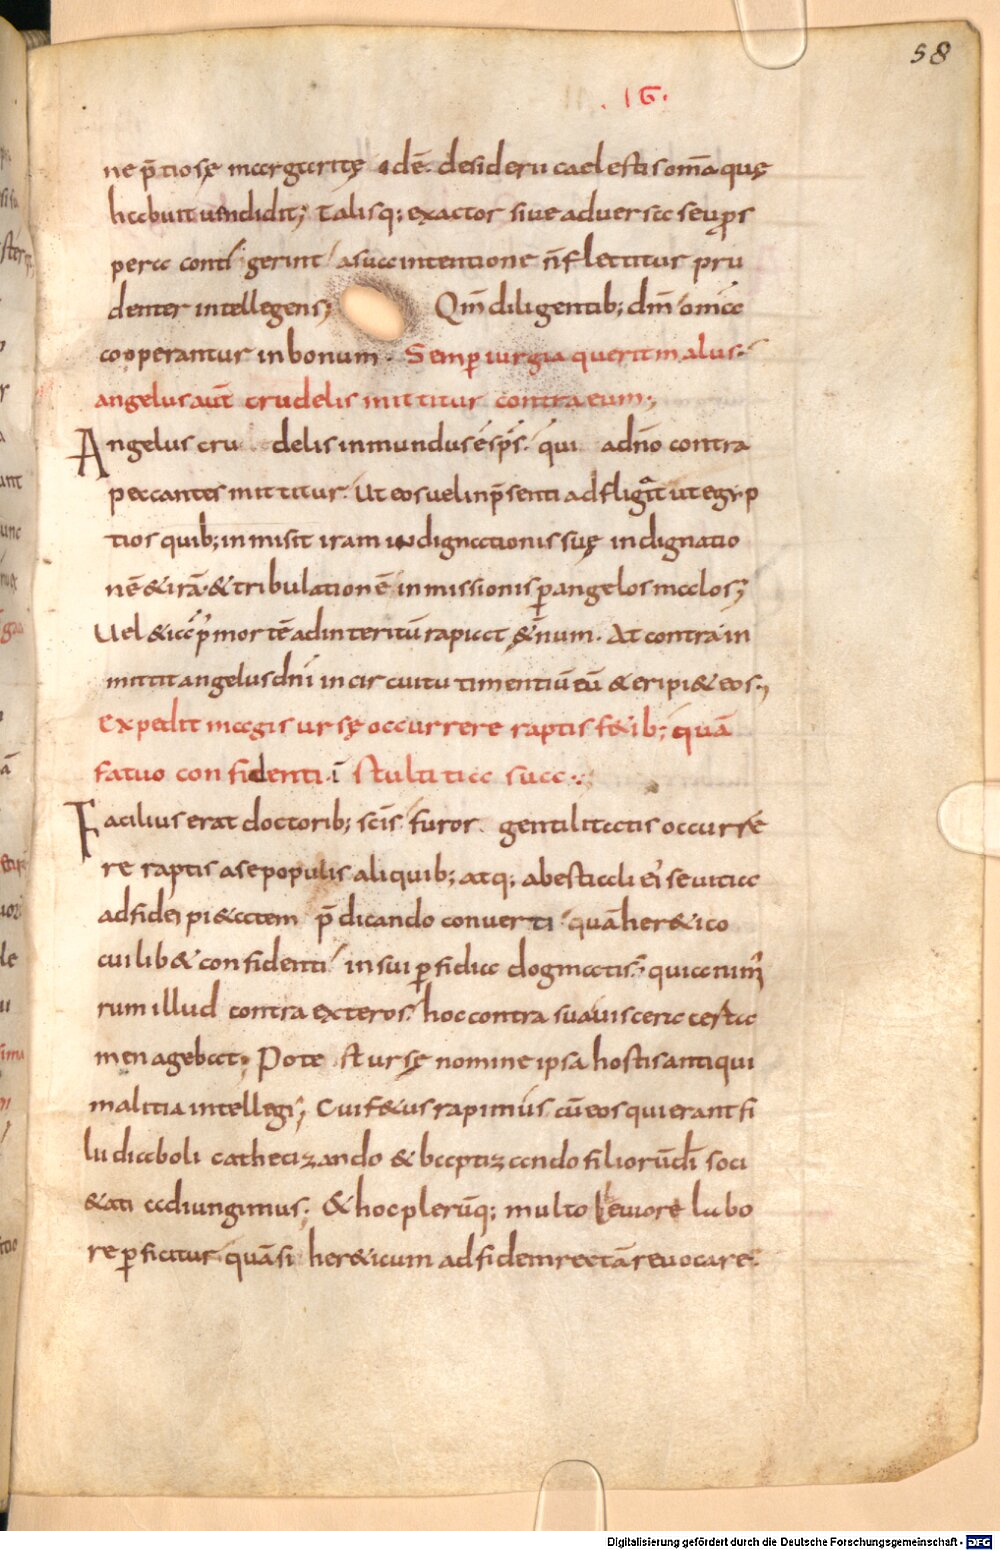 58
. IG .
ne p̄tiosę margaritę · ·idē· desiderii caelestis om̄a quę
habuit uendidit; talisq; exactor siue aduersa seu ꝓs
pera contigerint a sua intentione n̄ flectitur pru
denter intellegens; Qm̄ diligentib; dm̄ omia
cooperantur in bonum · Semp̲ iurgia querit malus·
angelus aut̄ crudelis mittitur contra eum;
Angelus crudelis inmundus ē sp̄s· qui a dn̄o contra
peccantes mittitur· Ut eos uel in p̄senti adfligat ut egyp
tios quib; inmisit iram indignationis suę indignatio
nē & irā & tribulationē inmissionis p̲ angelos malos;
Uel & ia p̲ mortē ad interitū rapiat &̨n̄um · At contra in
mittit angelus dn̄i in circuitu timentiū eū & eripi& eos;
Expedit magis ursę occurrere raptis f&ib; quā
fatuo confidenti ī stultitia sua·:
Facilius erat doctorib; sc̄is furor gentilitatis occurre
re raptis a se populis aliquib; atq; a bestiali ei' seuitia
ad fidei pi&atem p̄dicando conuerti quā her&ico
cuilib& confidenti in sui p̲fidia dogmatis· quia nim̄
rum illud contra exteros· hoc contra sua uiscera certa
men agebat; Pote st ursę nomine ipsa hostis antiqui
malitia intellegi; Cui f&us rapimus cū eos qui erant fi
lii diaboli cathecizando & baptizando filiorū dī soci
&ati adiungimus; & hoc plerūq; multo leuiore labo
re p̲ficitur quā si her&icum ad fidem rectā reuocare·
Digitalisierung gefördert durch die Deutsche Forschungsgemeinschaft - DFG